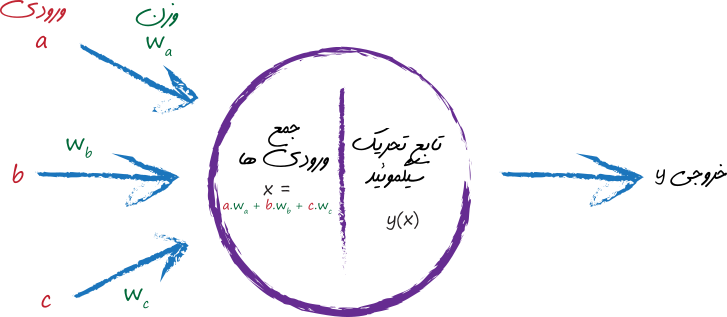 ورودی
a
وزن
wₐ
w_b
b
c
w_c
جمع
ورودی ها
x =
a.wₐ + b.w_b + c.w_c
تابع تحریک
سیگموئید
y(x)
خروجی y